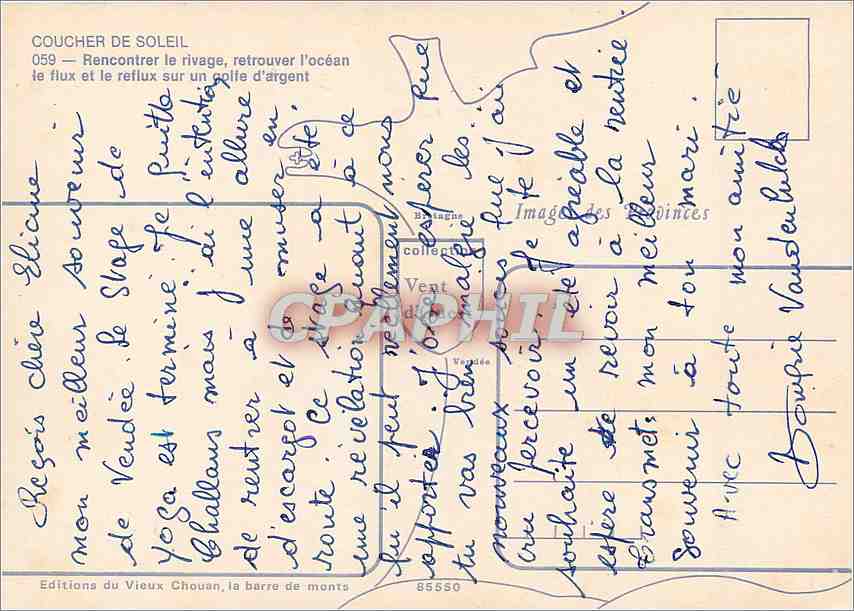 COUCHER DE SOLEIL
059 — Rencontrer le rivage, retrouver l'océan
le flux et le reflux sur un golfe d'argent
Reçois chère Eliane
mon meilleur souvenir
de Vendée. Le Stage de
yoga est terminé. Je quitte
Challans mais j'ai l'intention
de rentrer à une allure
d'escargot et de muser en
route. Ce stage a été
une révélation quant à ce
qu'il peut réellement nous
apporter. J'ose espérer que
tu vas bien malgré les
nouveaux soucis que j'ai
cru percevoir. Je te
souhaite un été agréable et
espère te revoir à la rentrée.
Transmets mon meilleur
souvenir à ton mari.
Avec toute mon amitié
Bretagne
Images des Provinces
collection
Vent
Vendée
CPAPHIL
Editions du Vieux Chouan, la barre de monts
85550